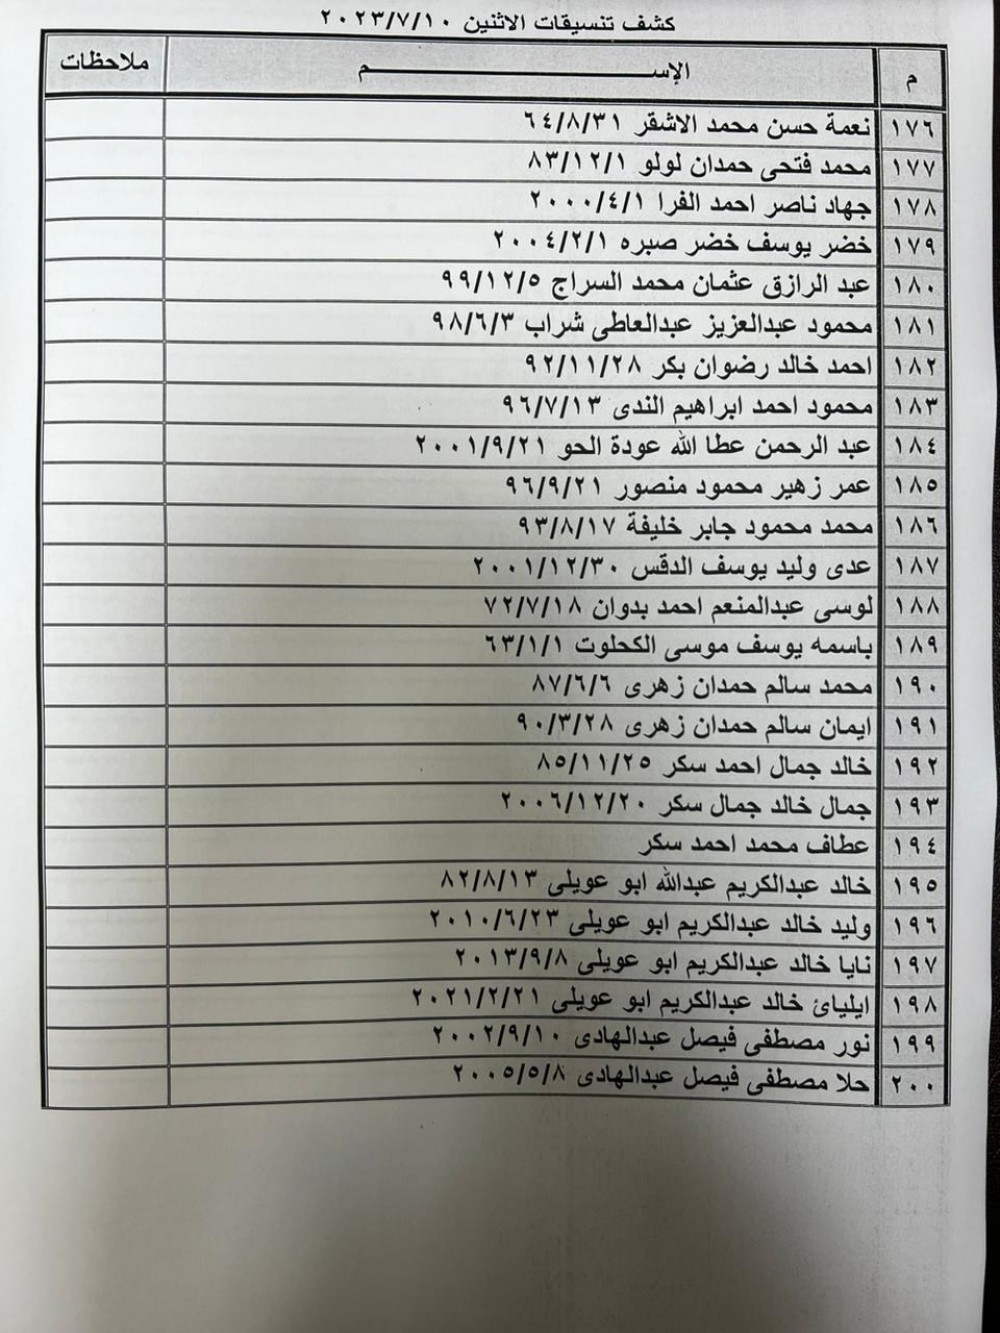 كشف تنسيقات الاثنين ٢٠٢٣/٧/١٠
م الإســـــــم ملاحظات
١٧٦ نعمة حسن محمد الاشقر ٦٤/٨/٣١
١٧٧ محمد فتحى حمدان لولو ٨٣/١٢/١
١٧٨ جهاد ناصر احمد الفرا ٢٠٠٠/٤/١
١٧٩ خضر يوسف خضر صبره ٢٠٠٤/٢/١
١٨٠ عبد الرازق عثمان محمد السراج ٩٩/١٢/٥
١٨١ محمود عبدالعزيز عبدالعاطى شراب ٩٨/٦/٣
١٨٢ احمد خالد رضوان بكر ٩٢/١١/٢٨
١٨٣ محمود احمد ابراهيم الندى ٩٦/٧/١٣
١٨٤ عبد الرحمن عطا الله عودة الحو ٢٠٠١/٩/٢١
١٨٥ عمر زهير محمود منصور ٩٦/٩/٢١
١٨٦ محمد محمود جابر خليفة ٩٣/٨/١٧
١٨٧ عدى وليد يوسف الدقس ٢٠٠١/١٢/٣٠
١٨٨ لوسى عبدالمنعم احمد بدوان ٧٢/٧/١٨
١٨٩ باسمه يوسف موسى الكحلوت ٦٣/١/١
١٩٠ محمد سالم حمدان زهرى ٨٧/٦/٦
١٩١ ايمان سالم حمدان زهرى ٩٠/٣/٢٨
١٩٢ خالد جمال احمد سكر ٨٥/١١/٢٥
١٩٣ جمال خالد جمال سكر ٢٠٠٦/١٢/٢٠
١٩٤ عطاف محمد احمد سكر
١٩٥ خالد عبدالكريم عبدالله ابو عويلى ٨٢/٨/١٣
١٩٦ وليد خالد عبدالكريم ابو عويلى ٢٠١٠/٦/٢٣
١٩٧ نايا خالد عبدالكريم ابو عويلى ٢٠١٣/٩/٨
١٩٨ ايليائ خالد عبدالكريم ابو عويلى ٢٠٢١/٢/٢١
١٩٩ نور مصطفى فيصل عبدالهادى ٢٠٠٢/٩/١٠
٢٠٠ حلا مصطفى فيصل عبدالهادى ٢٠٠٥/٥/٨